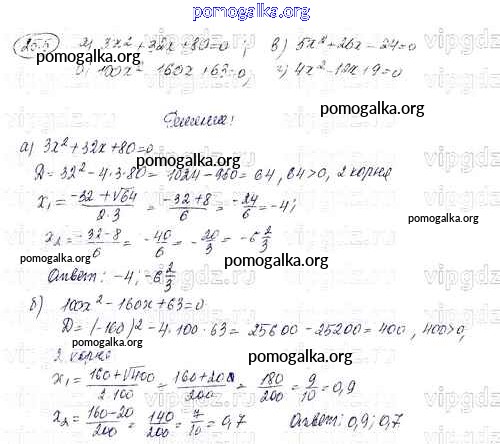 pomogalka.org
25.5 а) 3x² + 32x + 80 = 0 ; в) 5x² + 26x − 24 = 0
б) 100x² − 160x + 63 = 0; г) 4x² − 12x + 9 = 0
pomogalka.org
Решение:
а) 3x² + 32x + 80 = 0
pomogalka.org
D = 32² − 4 · 3 · 80 = 1024 − 960 = 64, 64 > 0, 2 корня
pomogalka.org
x₁ = (−32 + √64)/(2·3) = (−32 + 8)/6 = −24/6 = −4;
pomogalka.org
x₂ = (−32 − 8)/6 = −40/6 = −20/3 = −6 2/3
pomogalka.org
Ответ: −4; −6 2/3
pomogalka.org
б) 100x² − 160x + 63 = 0
D = (−160)² − 4 · 100 · 63 = 25600 − 25200 = 400, 400 > 0,
2 корня
pomogalka.org
x₁ = (160 + √400)/(2·100) = (160 + 20)/200 = 180/200 = 9/10 = 0,9
x₂ = (160 − 20)/200 = 140/200 = 7/10 = 0,7 Ответ: 0,9; 0,7
pomogalka.org
vipgdz.ru